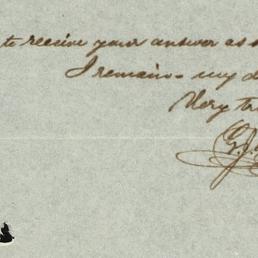 to receive your answer as
I remain - my
Very